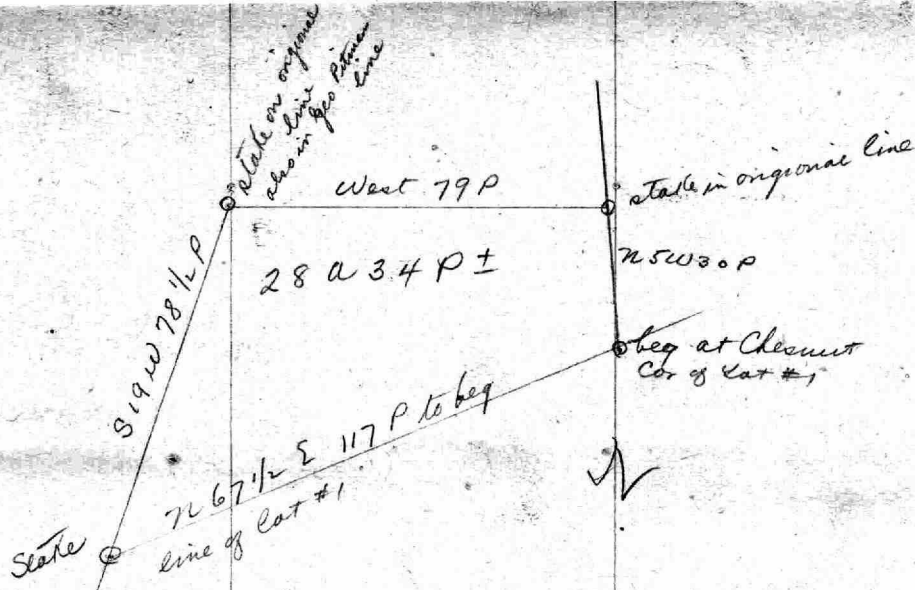 stake on original
line
also in Geo Pitman
line
West 79 P
stake in origional line
28 a 34 P ±
N5W30P
S19W 78 1/2 P
beg at Chesnut
Cor of Lot #1
N 67 1/2 E 117 P to beg
line of Lot #1
N
Stake